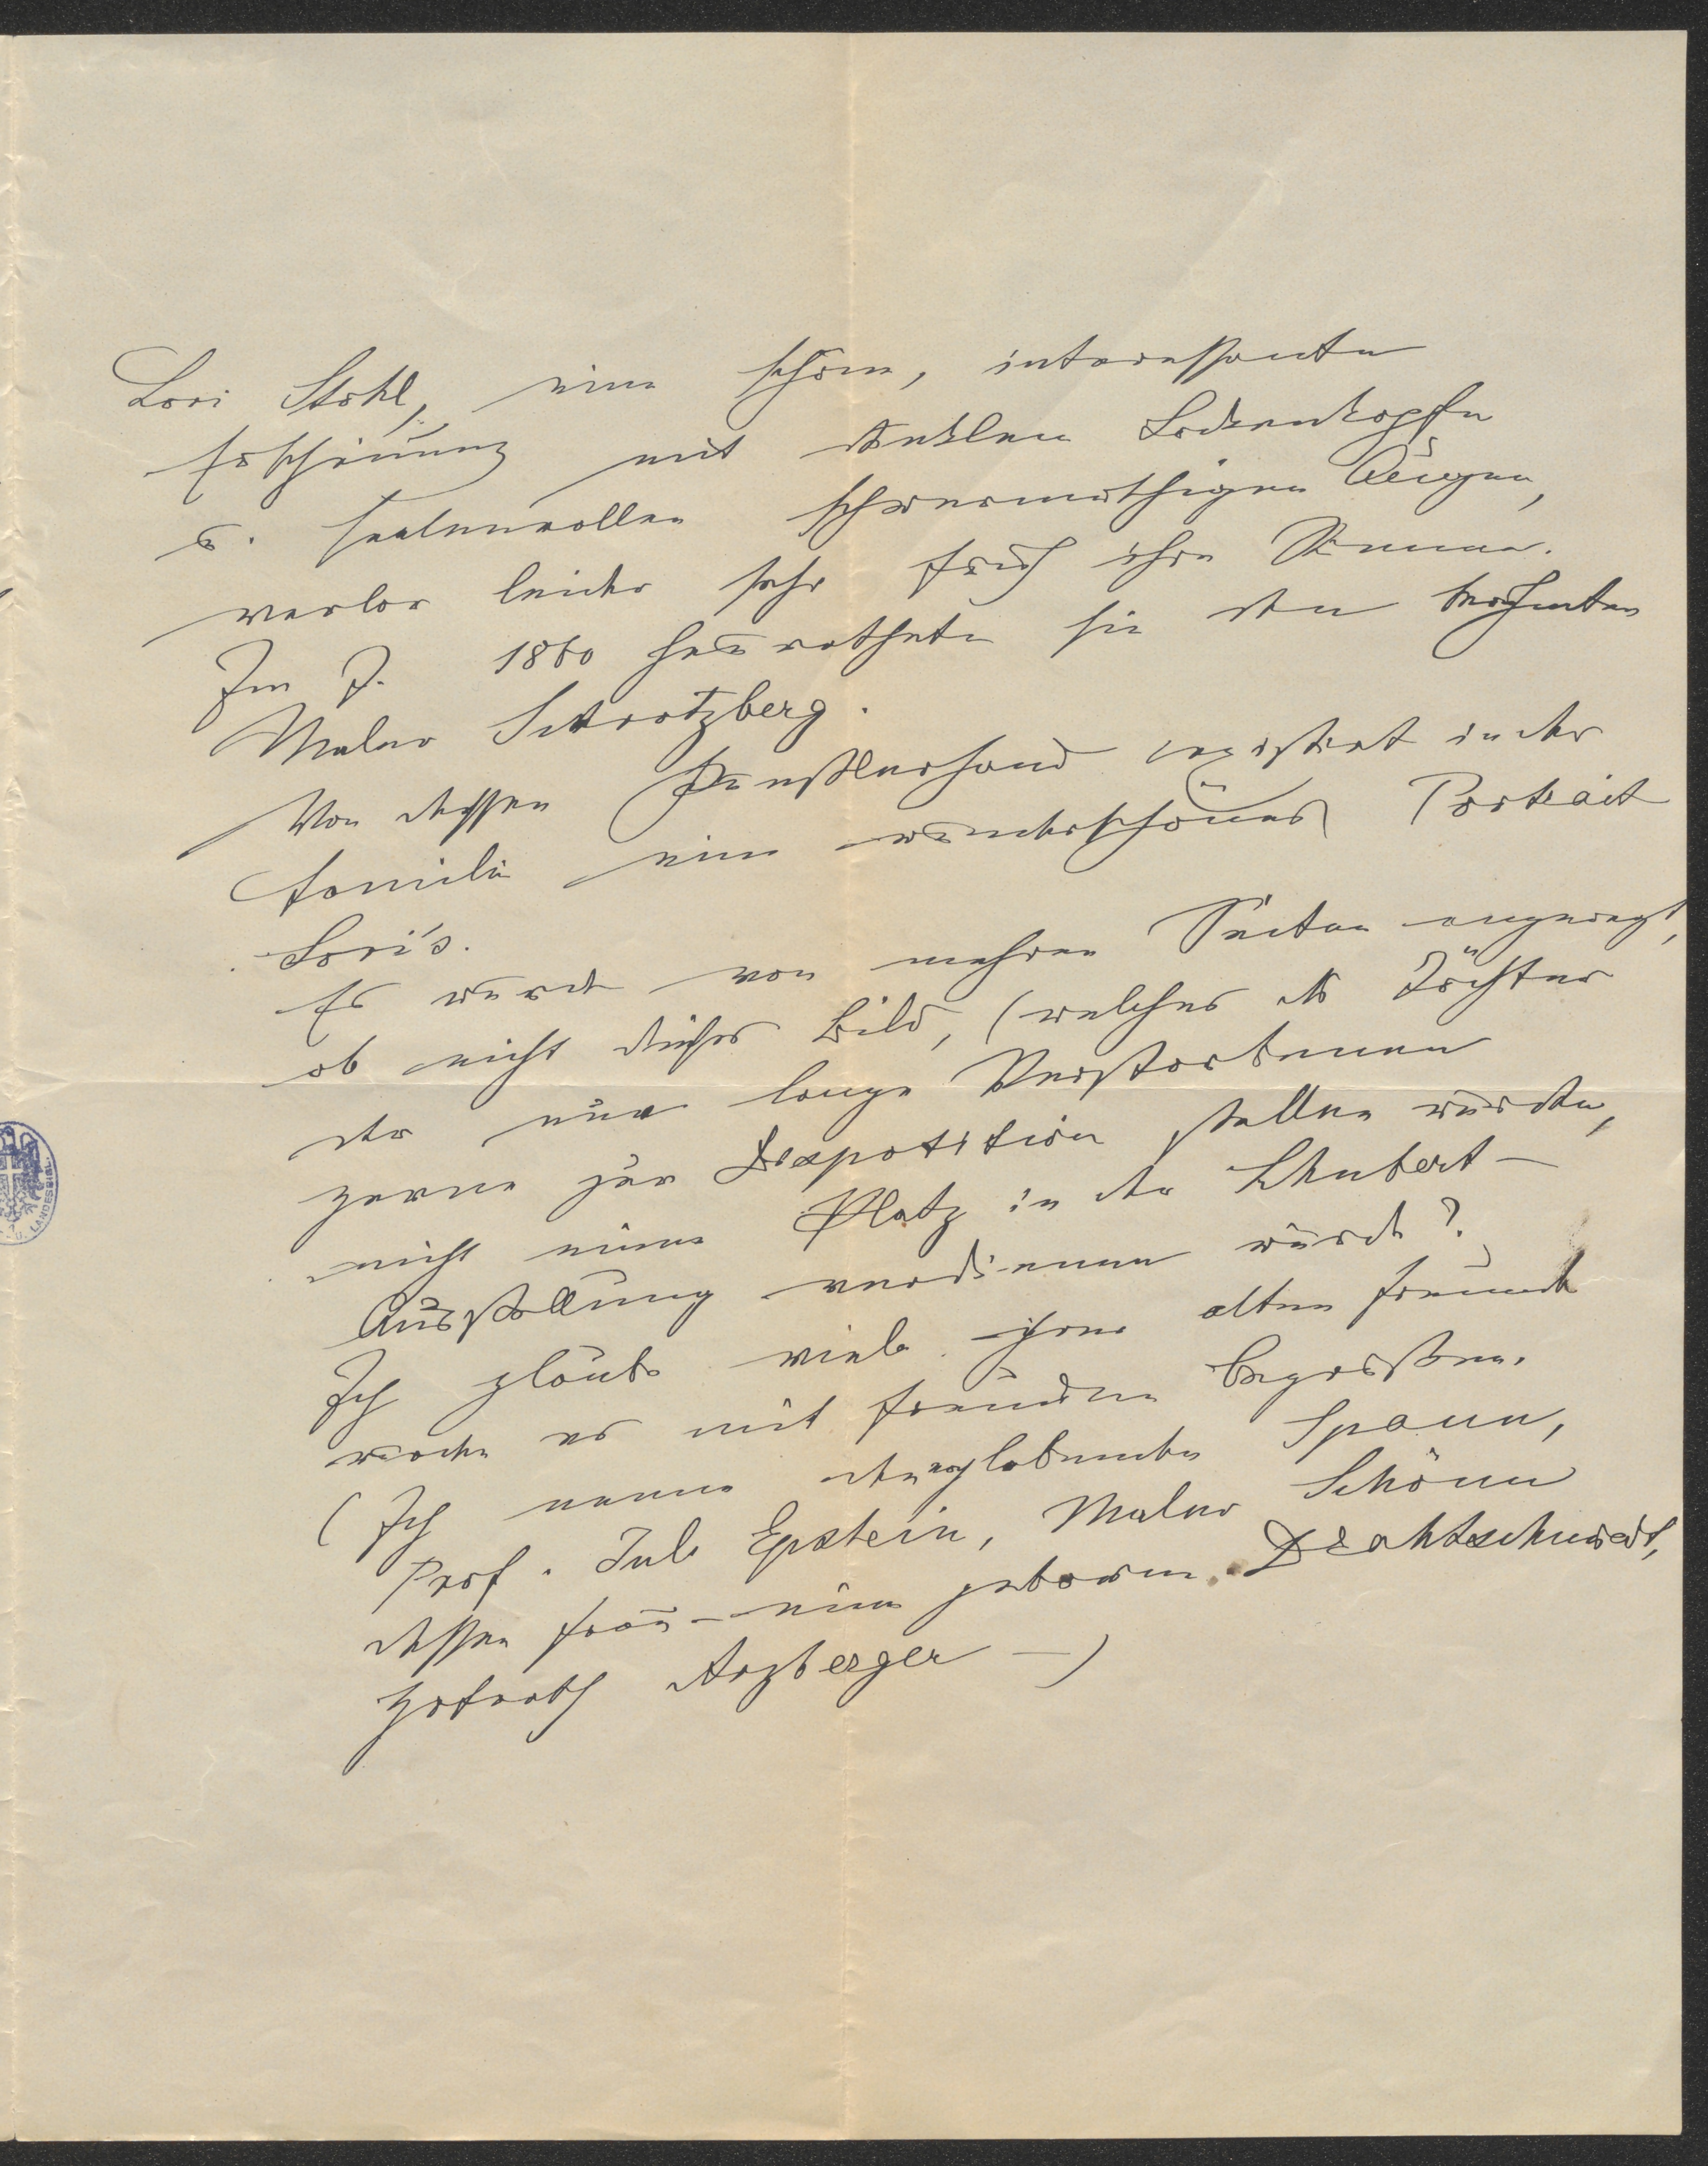 Lori Stohl, eine schöne, interessante
Erscheinung mit dunklem Lockenkopfe
u. seelenvollen schwermüthigen Augen,
verlor leider sehr früh ihre Stimme.
Im J. 1860 heurathete sie den berühmten
Maler Schrotzberg.
Von dessen Künstlerhand existirt in der
Familie ein wunderschönes Portrait
Lori's.
Es wurde von mehren Seiten angeregt,
ob nicht dieses Bild, (welches die Töchter
der nun lange Verstorbenen
gerne zur Disposition stellen würden,
nicht einen Platz in der Schubert-
Ausstellung verdienen würde?
Ich glaube viele ihrer alten Freunde
würden es mit Freuden begrüßen.
(Ich nenne den noch lebenden Spaun,
Prof. Jul. Epstein, Maler Schönn
dessen Frau – eine geborene
Hofrath Arzberger –)
LANDESBIBL.